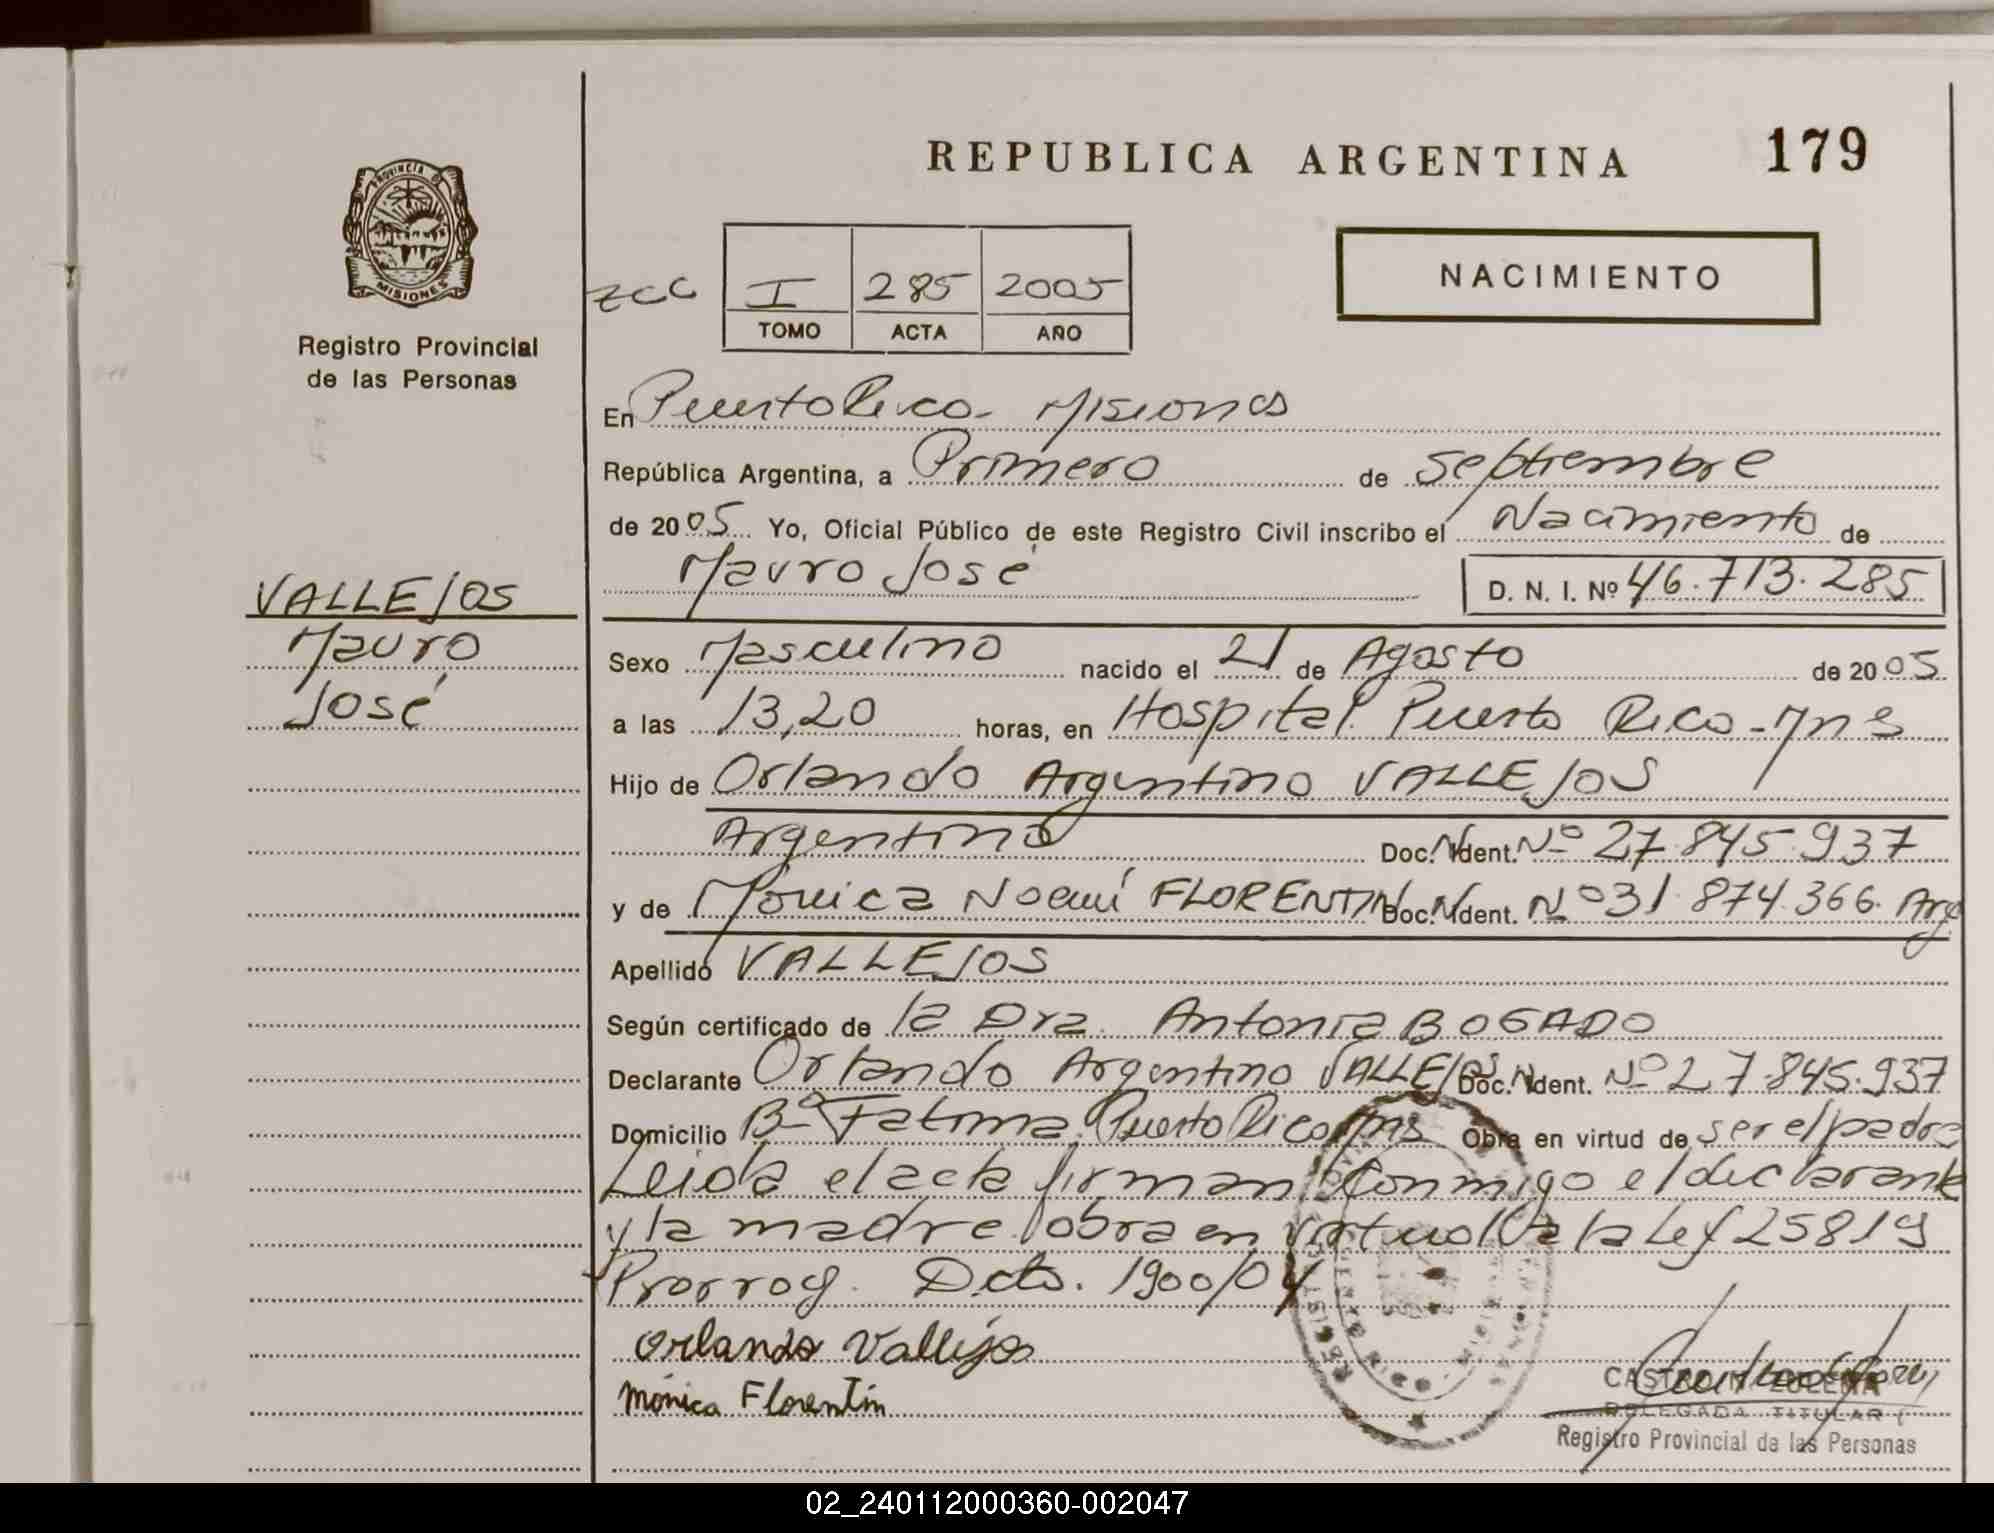 REPUBLICA ARGENTINA 179
PROVINCIA D
MISIONES
Registro Provincial
de las Personas
zcc I 285 2005
TOMO ACTA AÑO
NACIMIENTO
En Puerto Rico - Misiones
República Argentina, a Primero de Septiembre
de 2005 Yo, Oficial Público de este Registro Civil inscribo el Nacimiento de
Mauro José D. N. I. Nº 46.713.285
VALLEJOS
Mauro
José
Sexo Masculino nacido el 21 de Agosto de 2005
a las 13,20 horas, en Hospital Puerto Rico - Mns
Hijo de Orlando Argentino VALLEJOS
Argentino Doc. Ident. Nº 27.845.937
y de Mónica Noemí FLORENTIN Doc. Ident. Nº 31.874.366. Arg.
Apellido VALLEJOS
Según certificado de la Dra. Antonia BOGADO
Declarante Orlando Argentino VALLEJOS Doc. Ident. Nº 27.845.937
Domicilio Bº Fatima Puerto Rico Mns Obra en virtud de ser el padre
Leida el acta firman conmigo el declarante
y la madre obra en virtud a la Ley 25819
Prorrog. Dcto. 1900/04
Orlando Vallejos
Mónica Florentín
CASTRO M. ZULEMA
DELEGADA TITULAR
Registro Provincial de las Personas
02_240112000360-002047